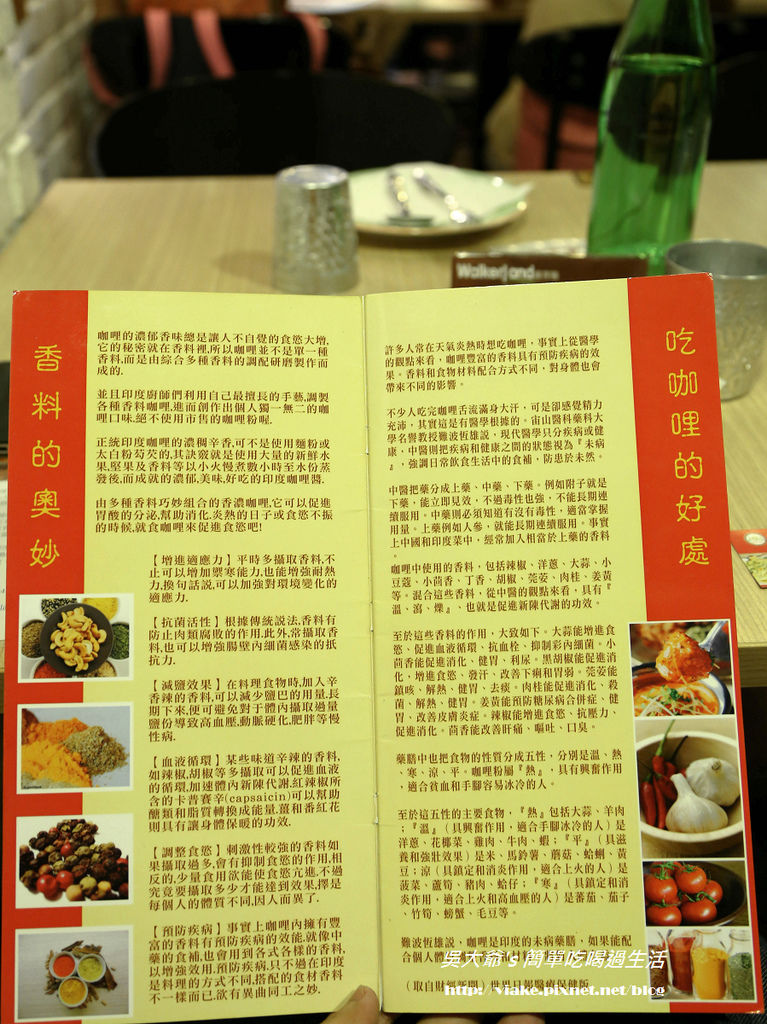 Walkerland
香料的奧妙
咖哩的濃郁香味總是讓人不自覺的食慾大增,
它的秘密就在香料裡,所以咖哩並不是單一種
香料,而是由綜合多種香料的調配研磨製作而
成的.
並且印度廚師們利用自己最擅長的手藝,調製
各種香料咖哩,進而創作出個人獨一無二的咖
哩口味,絕不使用市售的咖哩粉喔.
正統印度咖哩的濃稠辛香,可不是使用麵粉或
太白粉芶芡的,其訣竅就是使用大量的新鮮水
果,堅果及香料等以小火慢煮數小時至水份蒸
發後,而成就的濃郁,美味,好吃的印度咖哩醬.
由多種香料巧妙組合的香濃咖哩,它可以促進
胃酸的分泌,幫助消化,炎熱的日子或食慾不振
的時候,就食咖哩來促進食慾吧!
【增進適應力】平時多攝取香料,不
止可以增加禦寒能力,也能增強耐熱
力,換句話說,可以加強對環境變化的
適應力.
【抗菌活性】根據傳統說法,香料有
防止肉類腐敗的作用,此外,常攝取香
料,也可以增強腸壁內細菌感染的抵
抗力.
【減鹽效果】在料理食物時,加入辛
香辣的香料,可以減少鹽巴的用量,長
期下來,便可避免對于體內攝取過量
鹽份導致高血壓,動脈硬化,肥胖等慢
性病.
【血液循環】某些味道辛辣的香料,
如辣椒,胡椒等多攝取可以促進血液
的循環,加速體內新陳代謝,紅辣椒所
含的卡普賽辛(capsaicin)可以幫助
醣類和脂質轉換成能量.薑和番紅花
則具有讓身體保暖的功效.
【調整食慾】刺激性較強的香料如
果攝取過多,會有抑制食慾的作用,相
反的,少量食用欲能使食慾亢進.不過
究竟要攝取多少才能達到效果,擇是
每個人的體質不同,因人而異了.
【預防疾病】事實上咖哩內擁有豐
富的香料有預防疾病的效能,就像中
藥的食補,也會用到各式各樣的香料,
以增強效用,預防疾病,只不過在印度
是料理的方式不同,搭配的食材香料
不一樣而已.欲有異曲同工之妙.
吃咖哩的好處
許多人常在天氣炎熱時想吃咖哩,事實上從醫學
的觀點來看,咖哩豐富的香料具有預防疾病的效
果。香料和食物材料配合方式不同,對身體也會
帶來不同的影響。
不少人吃完咖哩舌流滿身大汗,可是卻感覺精力
充沛,其實這是有醫學根據的。宙山醫科藥科大
學名譽教授難波恆雄說,現代醫學只分疾病或健
康,中醫則把疾病和健康之間的狀態視為『未病
』,強調日常飲食生活中的食補,防患於未然。
中醫把藥分成上藥、中藥、下藥。例如附子就是
下藥,能立即見效,不過毒性也強,不能長期連
續服用。中藥則必須知道有沒有毒性,適當掌握
用量。上藥例如人參,就能長期連續服用。事實
上中國和印度菜中,經常加入相當於上藥的香料
。
咖哩中使用的香料,包括辣椒、洋蔥、大蒜、小
豆蔻、小茴香、丁香、胡椒、莞荽、肉桂、姜黃
等。混合這些香料,從中醫的觀點來看,具有『
溫、瀉、爍』,也就是促進新陳代謝的功效。
至於這些香料的作用,大致如下。大蒜能增進食
慾、促進血液循環、抗血栓、抑制彩內細菌。小
茴香能促進消化、健胃、利尿。黑胡椒能促進消
化、增進食慾、發汗、改善下痢和胃弱。莞荽能
鎮咳、解熱、健胃、去痰。肉桂能促進消化、殺
菌、解熱、健胃。姜黃能預防糖尿病合併症、健
胃、改善皮膚炎症。辣椒能增進食慾、抗壓力、
促進消化。茴香能改善肝痛、嘔吐、口臭。
藥膳中也把食物的性質分成五性,分別是溫、熱
、寒、涼、平。咖哩粉屬『熱』,具有興奮作用
,適合貧血和手腳容易冰冷的人。
至於這五性的主要食物,『熱』包括大蒜、羊肉
;『溫』(具興奮作用,適合手腳冰冷的人)是
洋蔥、花椰菜、雞肉、牛肉、蝦;『平』(具滋
養和強壯效果)是米、馬鈴薯、蘑菇、蛤蜊、黃
豆;涼(具鎮定和消炎作用,適合上火的人)是
菠菜、蘆筍、豬肉、蛤仔;『寒』(具鎮定和消
炎作用,適合上火和高血壓的人)是蕃茄、茄子
、竹筍、螃蟹、毛豆等。
難波恆雄說,咖哩是印度的未病藥膳,如果能配
合個人體
(取自財經新聞)世界日報醫療保健版
吳大爺's 簡單吃喝過生活
http://viake.pixnet.net/blog